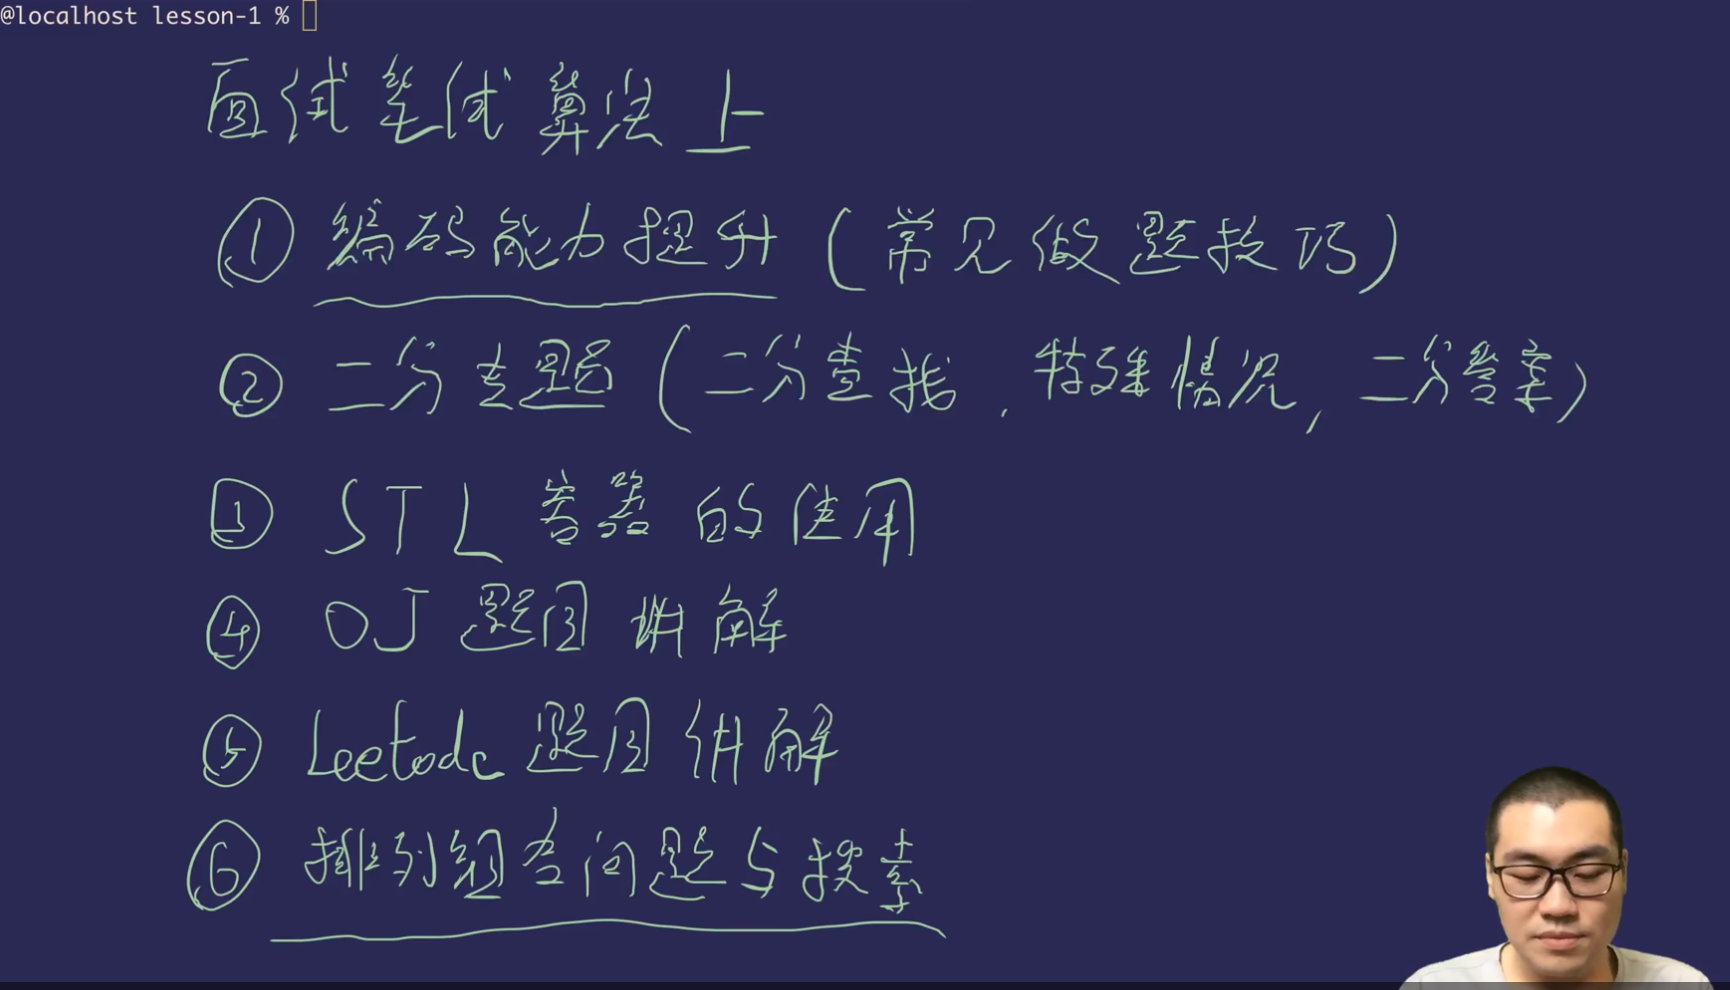 @localhost lesson-1 %
面试笔试算法上
① 编码能力提升（常见做题技巧）
② 二分专题（二分查找，特殊情况，二分答案）
③ STL容器的使用
④ OJ题目讲解
⑤ Leetcode题目讲解
⑥ 排列组合问题与搜索